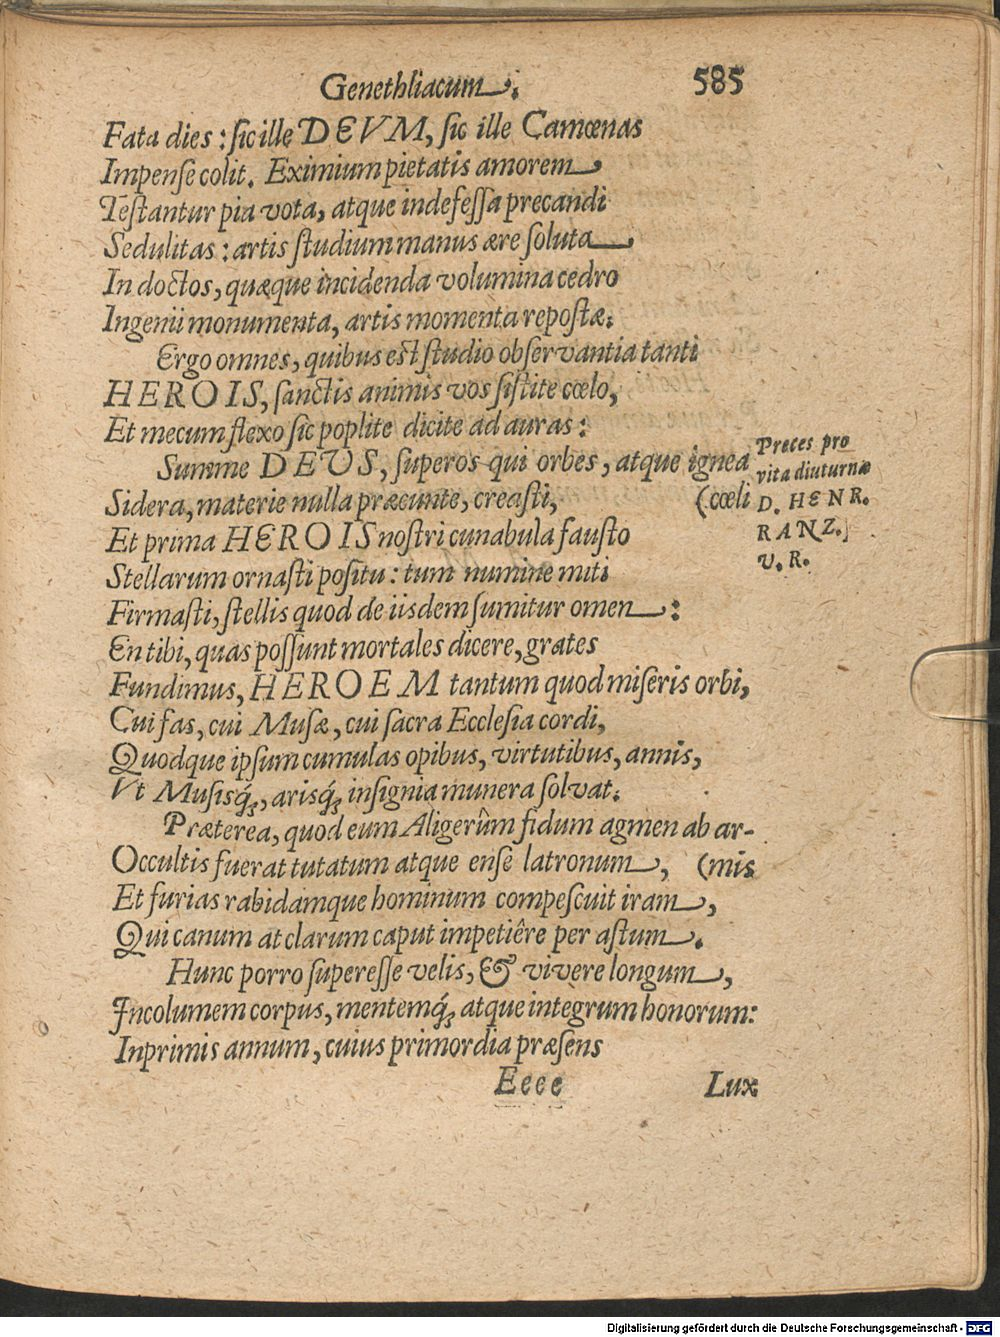 Genethliacum. 585
Fata dies: sic ille DEVM, sic ille Camœnas
Impense colit. Eximium pietatis amorem
Testantur pia vota, atque indefessa precandi
Sedulitas: artis studium manus ære soluta
In doctos, quæque incidenda volumina cedro
Ingenii monumenta, artis momenta repostæ.
Ergo omnes, quibus est studio observantia tanti
HEROIS, sanctis animis vos sistite cœlo,
Et mecum flexo sic poplite dicite ad auras:
Summe DEUS, superos qui orbes, atque ignea
Sidera, materie nulla præeunte, creasti, (cœli
Et prima HEROIS nostri cunabula fausto
Stellarum ornasti positu: tum numine miti
Firmasti, stellis quod de iisdem sumitur omen:
En tibi, quas possunt mortales dicere, grates
Fundimus, HEROEM tantum quod miseris orbi,
Cui fas, cui Musæ, cui sacra Ecclesia cordi,
Quodque ipsum cumulas opibus, virtutibus, annis,
Vt Musisq́;, arisq́; insignia munera solvat.
Præterea, quod eum Aligerûm fidum agmen ab ar-
Occultis fuerat tutatum atque ense latronum, (mis
Et furias rabidamque hominum compescuit iram,
Qui canum at clarum caput impetiêre per astum.
Hunc porro superesse velis, & vivere longum,
Incolumem corpus, mentemq́; atque integrum honorum:
Inprimis annum, cuius primordia præsens
Eeee Lux
Preces pro
vita diuturnæ
D. HENR.
RANZ.
V. R.
Digitalisierung gefördert durch die Deutsche Forschungsgemeinschaft - DFG